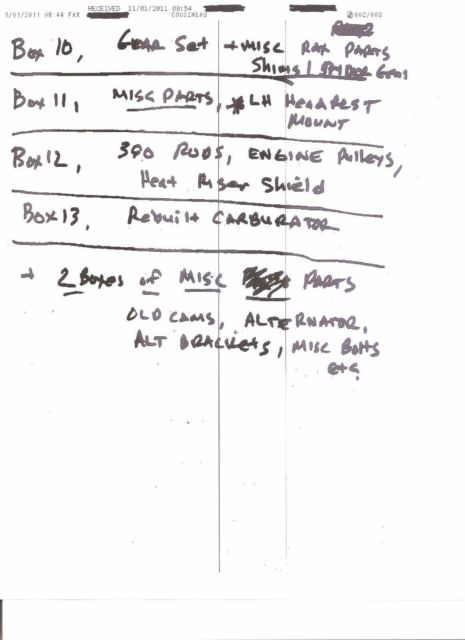 1/01/2011 06:44 FAX RECEIVED 11/01/2011 08:54 COUSINEAU 002/003
Box 10, GEAR Set + MISC REAR PARTS
Shims / SPYDOR GEARS
Box 11, MISC PARTS, * LH HEADREST
MOUNT
Box 12, 390 RODS, ENGINE Pulleys,
Heat Riser Shield
Box 13, Rebuilt CARBURATOR
+ 2 Boxes of MISC PARTS
OLD CAMS, ALTERNATOR,
ALT BRACKETS, MISC BOLTS
etc